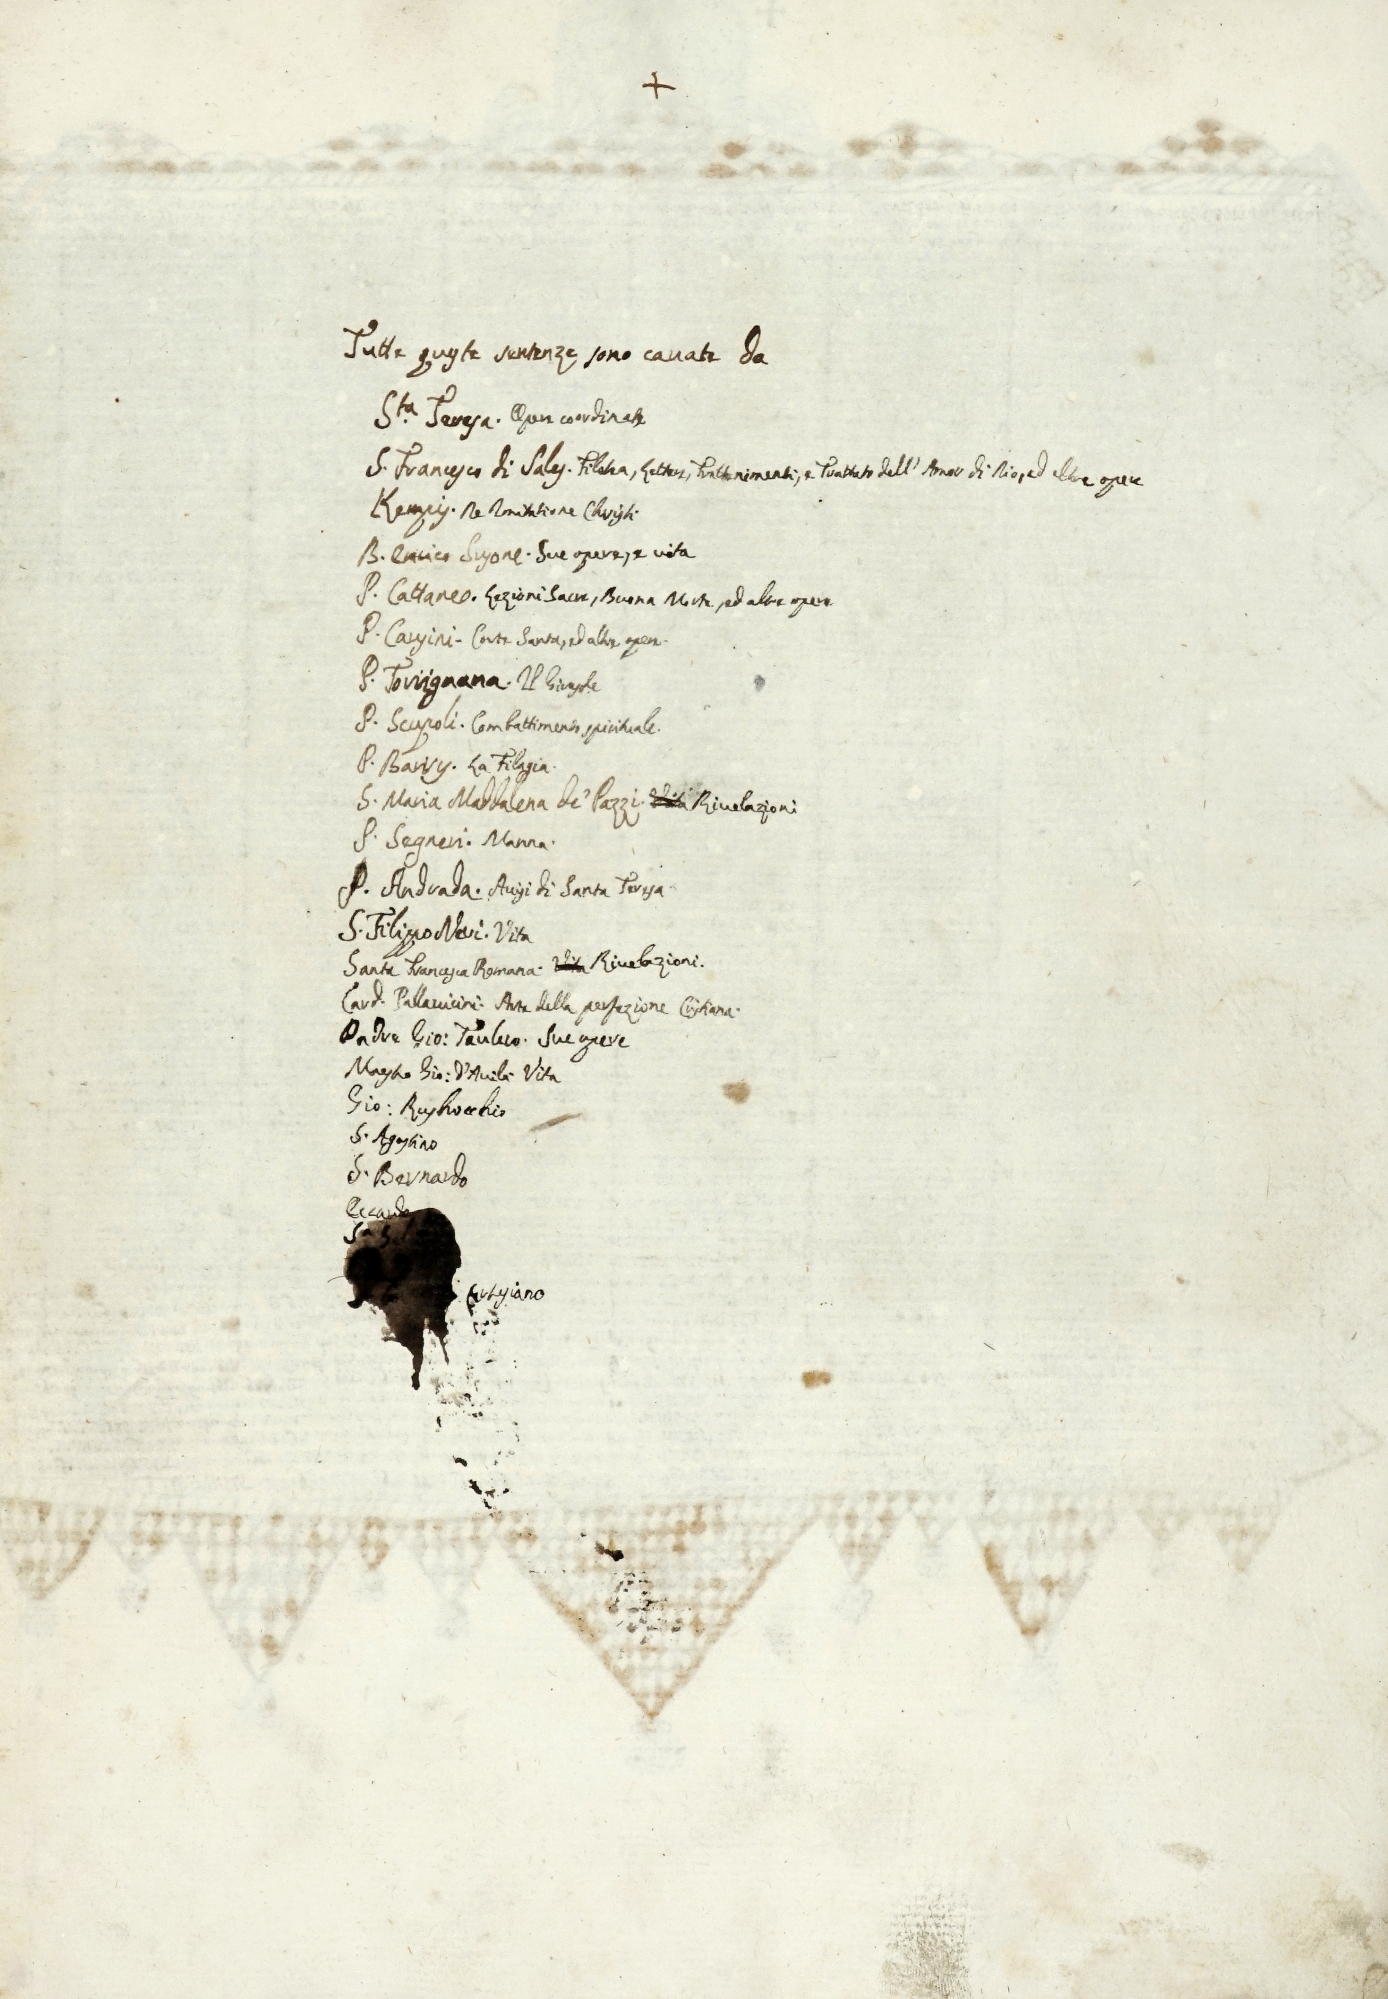 +
Tutte queste sentenze sono cauate da
S.ta Teresa. Opere coordinate
S. Francesco di Sales. Filotea, Lettere, Trattenimenti, e Trattato dell' Amor di Dio, ed altre opere
Kempis. De Imitatione Christi
B. Enrico Susone. Sue opere, e vita
P. Cattaneo. Lezioni Sacre, Buona Morte, ed altre opere
P. Causini. Corte Santa, ed altre opere.
P. Torrignana. Il
P. Scupoli. Combattimento spirituale.
P. Barry. La Filagia.
S. Maria Maddalena de' Pazzi. Vita Riuelazioni
P. Segneri. Manna.
P. Andrada. Auisi di Santa Teresa
S. Filippo Neri. Vita
Santa Francesca Romana. Vita Riuelazioni.
Card. Pallauicini. Arte della perfezione Cristiana.
Padre Gio: Taulero. Sue opere
Maestro Gio: d'Auila Vita
Gio: Rusbrochio
S. Agostino
S. Bernardo
Certosiano